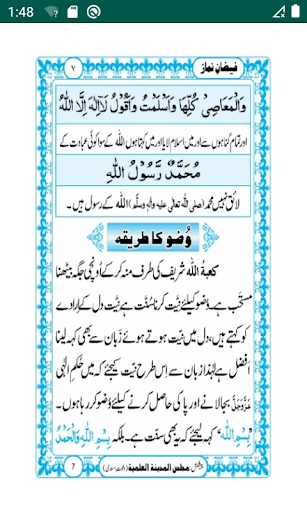 1:48
فیضانِ نماز ۷
وَالْمَعَاصِیْ کُلِّهَا وَاَسْلَمْتُ وَاَقُوْلُ لَآاِلٰهَ اِلَّا اللّٰهُ
اور تمام گناہوں سے اور میں اسلام لایا اور میں کہتا ہوں اللہ کے سوا کوئی عبادت کے
مُحَمَّدٌ رَّسُوْلُ اللّٰهِ
لائق نہیں محمد (صلی اللہ تعالٰی علیہ واٰلہٖ وسلّم) اللہ کے رسول ہیں۔
وُضو کا طریقہ
کعبۃُ اللہ شریف کی طرف منہ کر کے اُونچی جگہ بیٹھنا
مستَحب ہے۔ وُضو کیلئے نیّت کرنا سُنّت ہے نیّت دل کے ارادے
کو کہتے ہیں، دل میں نیّت ہوتے ہوئے زَبان سے بھی کہہ لینا
افضل ہے لہٰذا زبان سے اِس طرح نیّت کیجئے کہ میں حُکمِ الٰہی
عَزَّوَجَلَّ بجا لانے اور پاکی حاصل کرنے کیلئے وُضو کر رہا ہوں۔
بِسْمِ اللّٰه کہہ لیجئے کہ یہ بھی سنّت ہے۔ بلکہ بِسْمِ اللّٰهِ وَالْحَمْدُ
پیشکش: مجلس المدینۃ العلمیۃ (دعوتِ اسلامی) 7